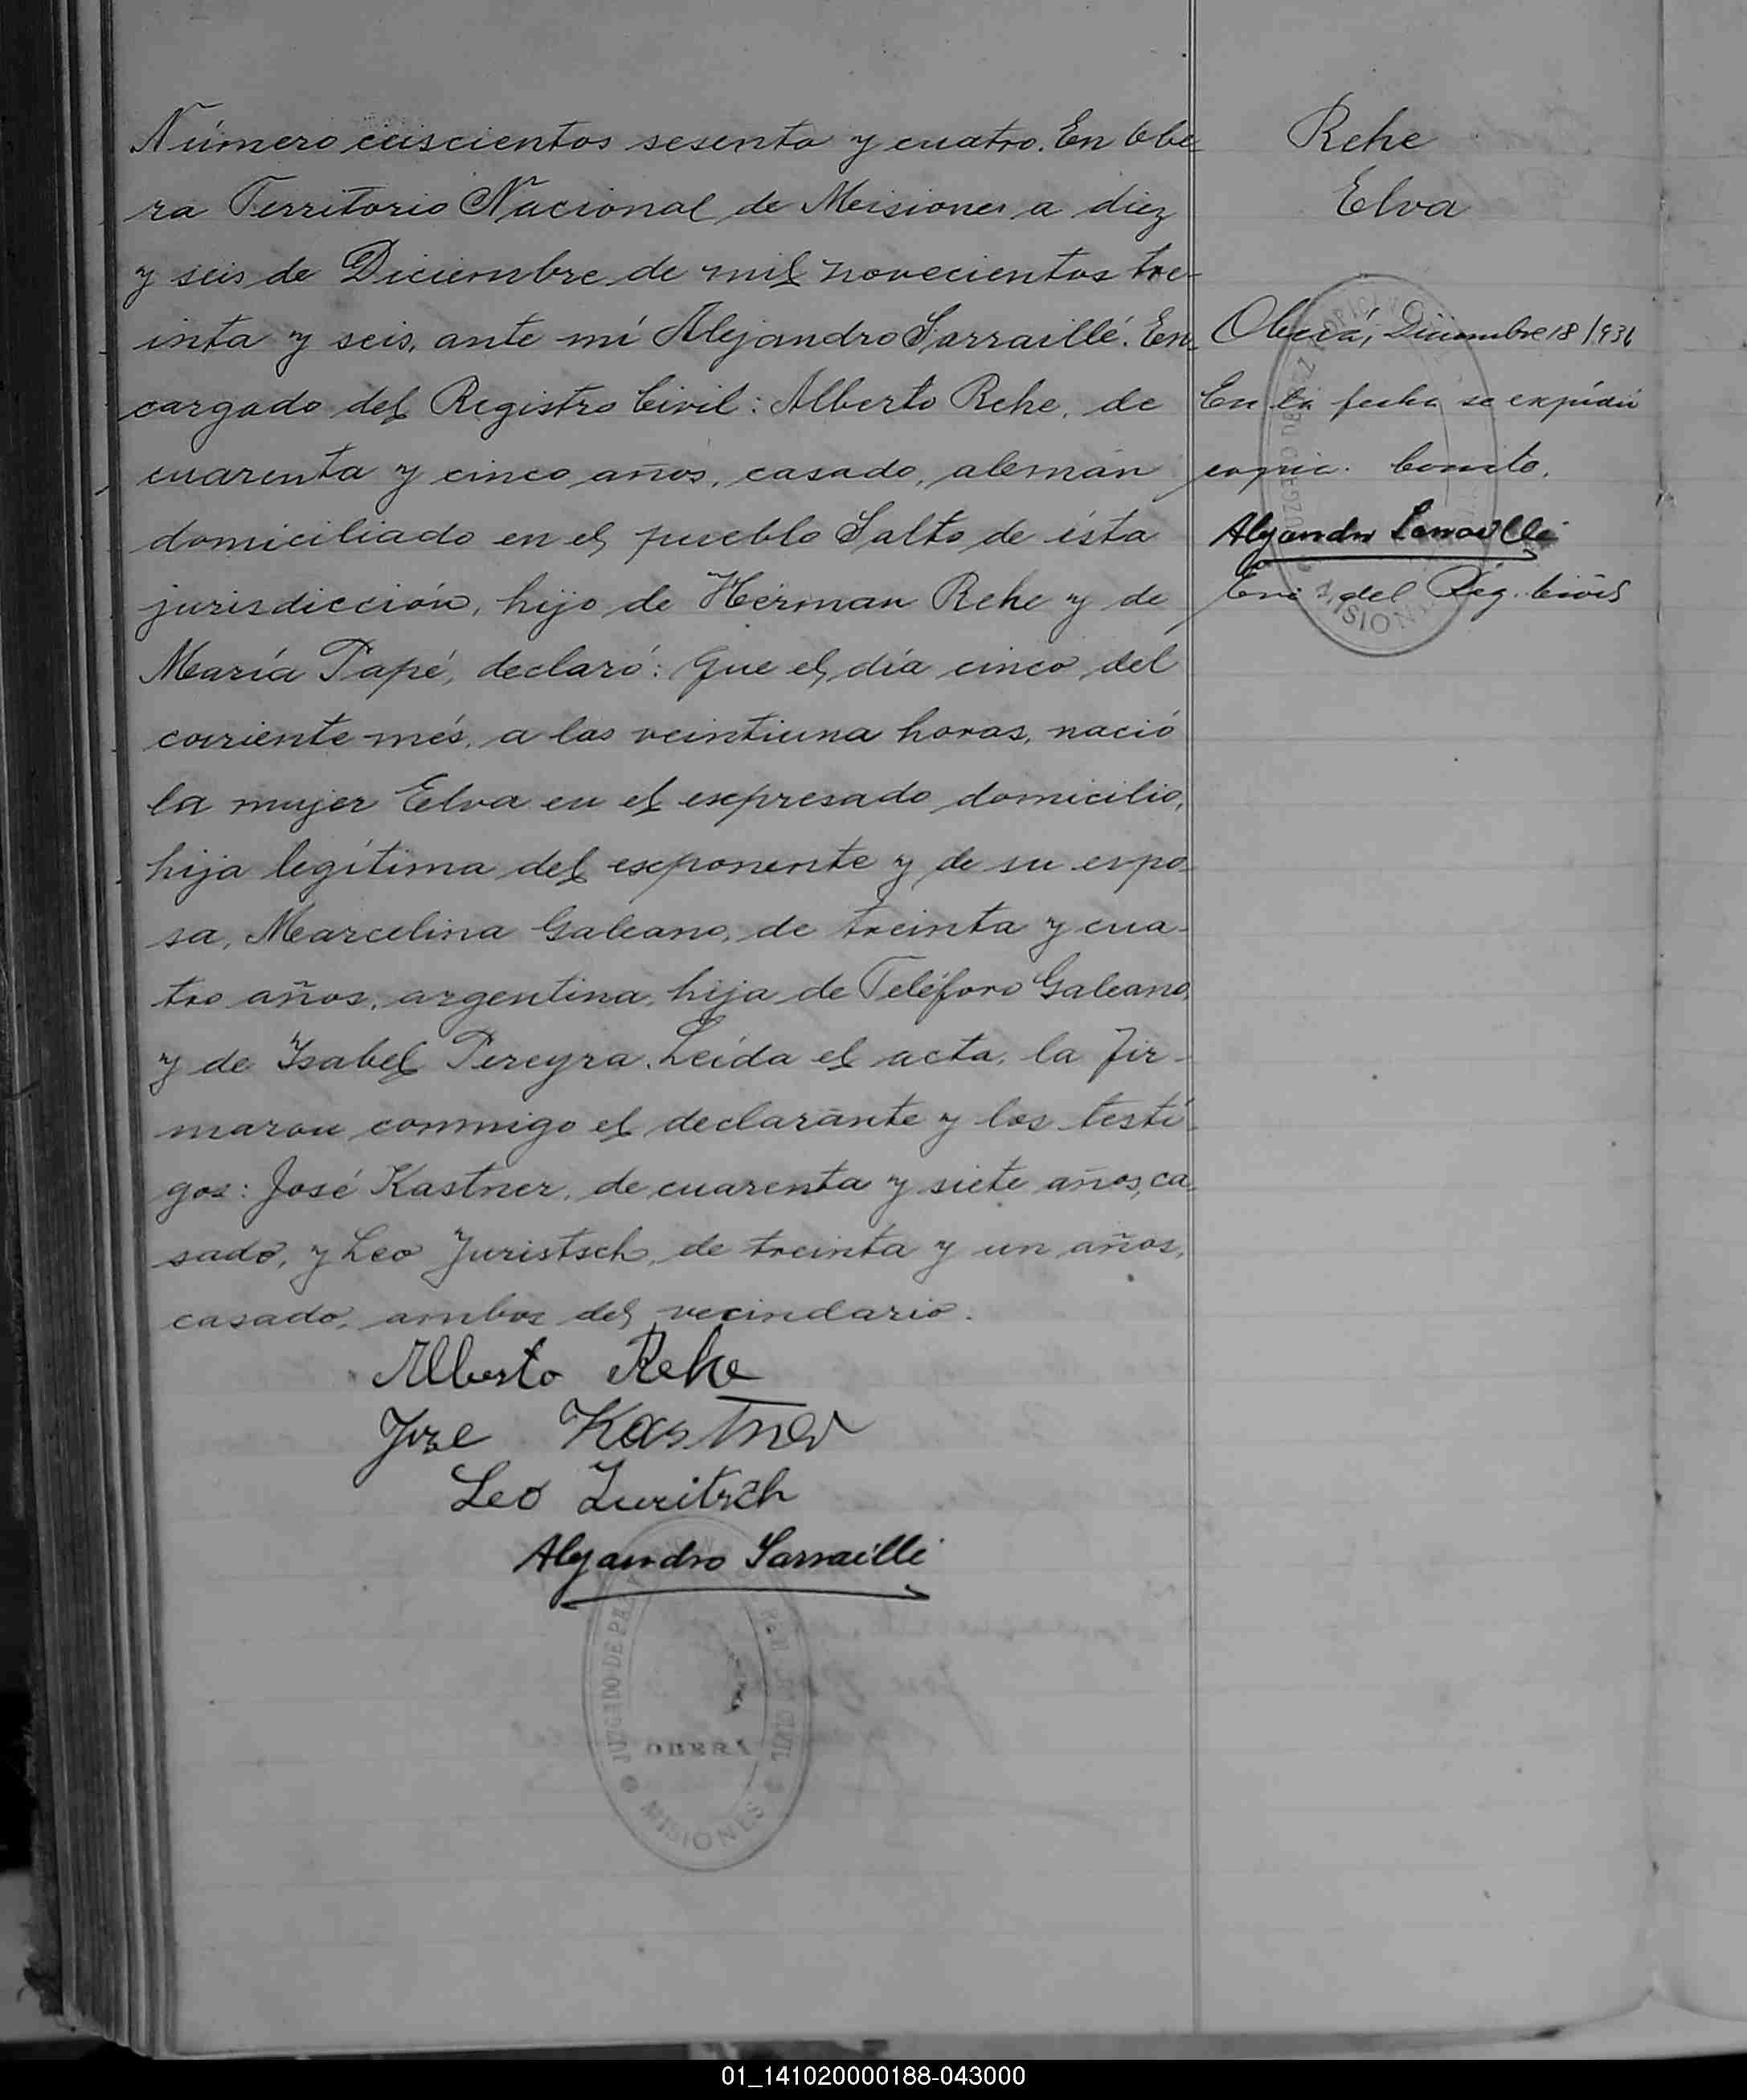 Número seiscientos sesenta y cuatro. En Obe-
ra Territorio Nacional de Misiones a diez
y seis de Diciembre de mil novecientos tre-
inta y seis, ante mí Alejandro Sarraillé. En-
cargado del Registro Civil: Alberto Rehe, de
cuarenta y cinco años, casado, alemán
domiciliado en el pueblo Salto de ésta
jurisdicción, hijo de Herman Rehe y de
María Papé, declaró: Que el día cinco del
corriente més, a las veintiuna horas, nació
la mujer Elva en el expresado domicilio,
hija legítima del exponente y de su espo-
sa, Marcelina Galeano, de treinta y cua-
tro años, argentina, hija de Teléforo Galeano
y de Isabel Pereyra. Leída el acta, la fir-
maron conmigo el declarante y los testi-
gos: José Kastner, de cuarenta y siete años, ca-
sado, y Leo Juristsch, de treinta y un años,
casado, ambos del vecindario.
Alberto Rehe
Jose Kastner
Leo Juritsch
Alejandro Sarraillé
JUZGADO DE PAZ
CIVIL
OBERA
MISIONES
Rehe
Elva
Oberá, Diciembre 18/936
En la fecha se expidió
copia. Conste.
Alejandro Sarraillé
Enc. del Reg. Civil
JUZGADO DE PAZ
MISIONES
01_141020000188-043000